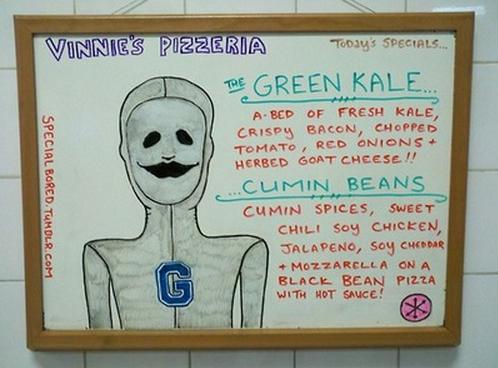 VINNIE'S PIZZERIA
TODAY'S SPECIALS...
THE GREEN KALE...
A-BED OF FRESH KALE,
CRISPY BACON, CHOPPED
TOMATO, RED ONIONS +
HERBED GOAT CHEESE!!
...CUMIN BEANS
CUMIN SPICES, SWEET
CHILI SOY CHICKEN,
JALAPENO, SOY CHEDDAR
+ MOZZARELLA ON A
BLACK BEAN PIZZA
WITH HOT SAUCE!
SPECIALBORED.TUMBLR.COM
G